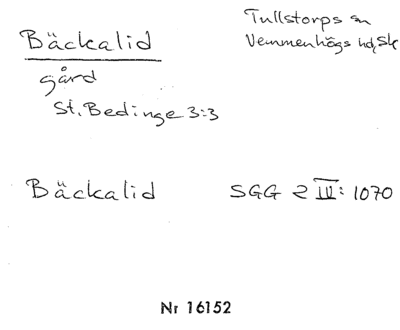 Bäckalid
gård
St. Bedinge 3:3
Tullstorps sn
Vemmenhögs hd, Sk
Bäckalid
SGG 2 III: 1070
Nr 16152